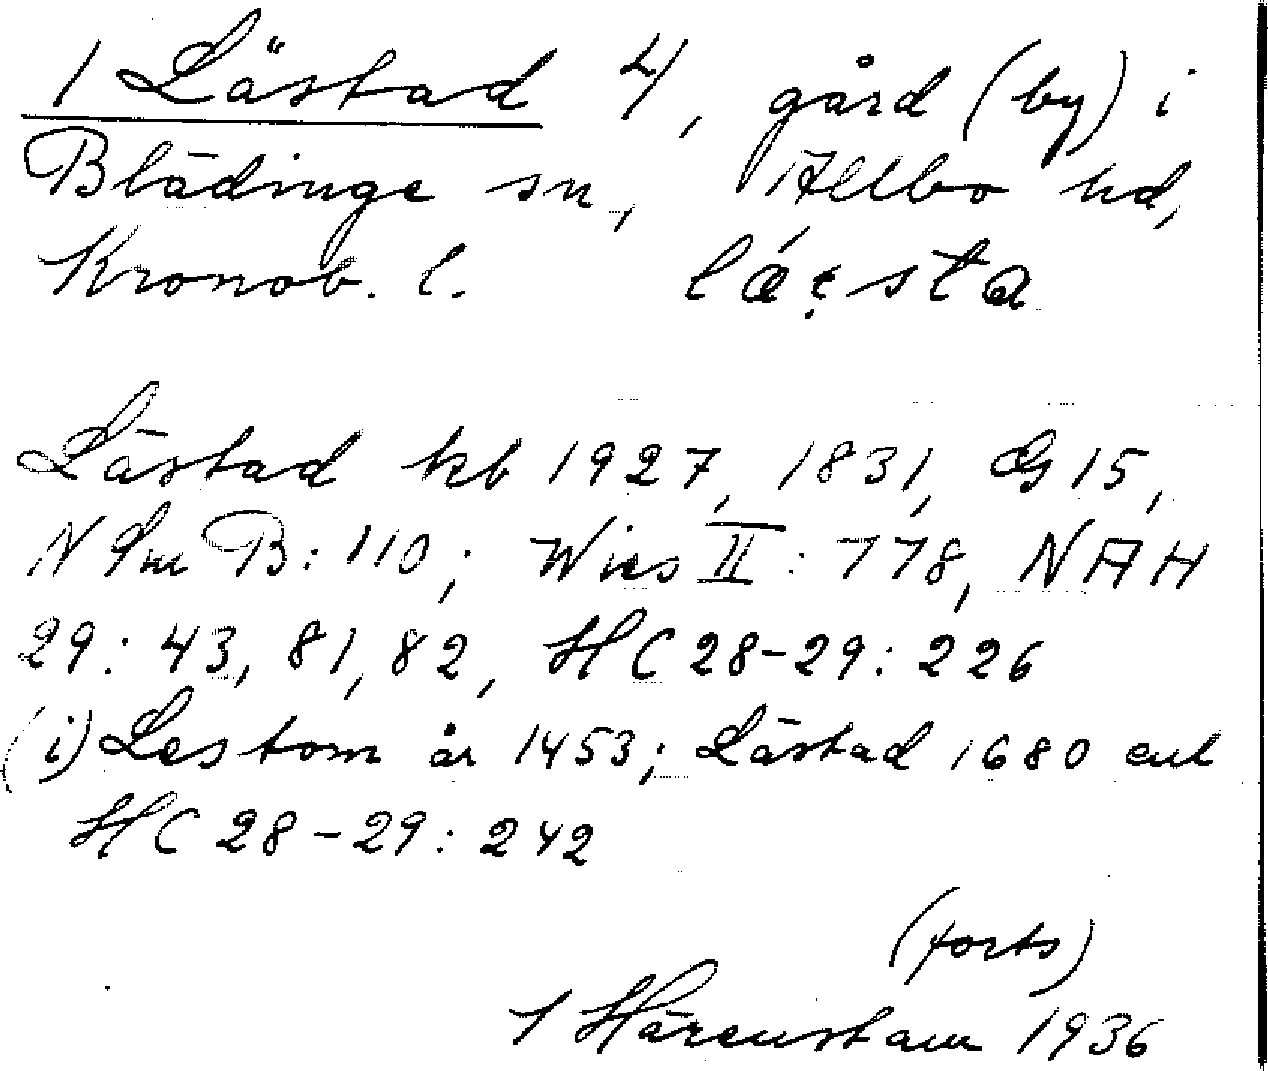 1 Lästad 4, gård (by) i
Blädinge sn, Allbo hd,
Kronob. l. 
Lästad kb 1927, 1831, G 15,
N Sm B: 110; Wies II: 778, NAH
29: 43, 81, 82, HC 28-29: 226
(i) Lestom år 1453; Lästad 1680 enl
HC 28-29: 242
(forts)
Härenstam 1936